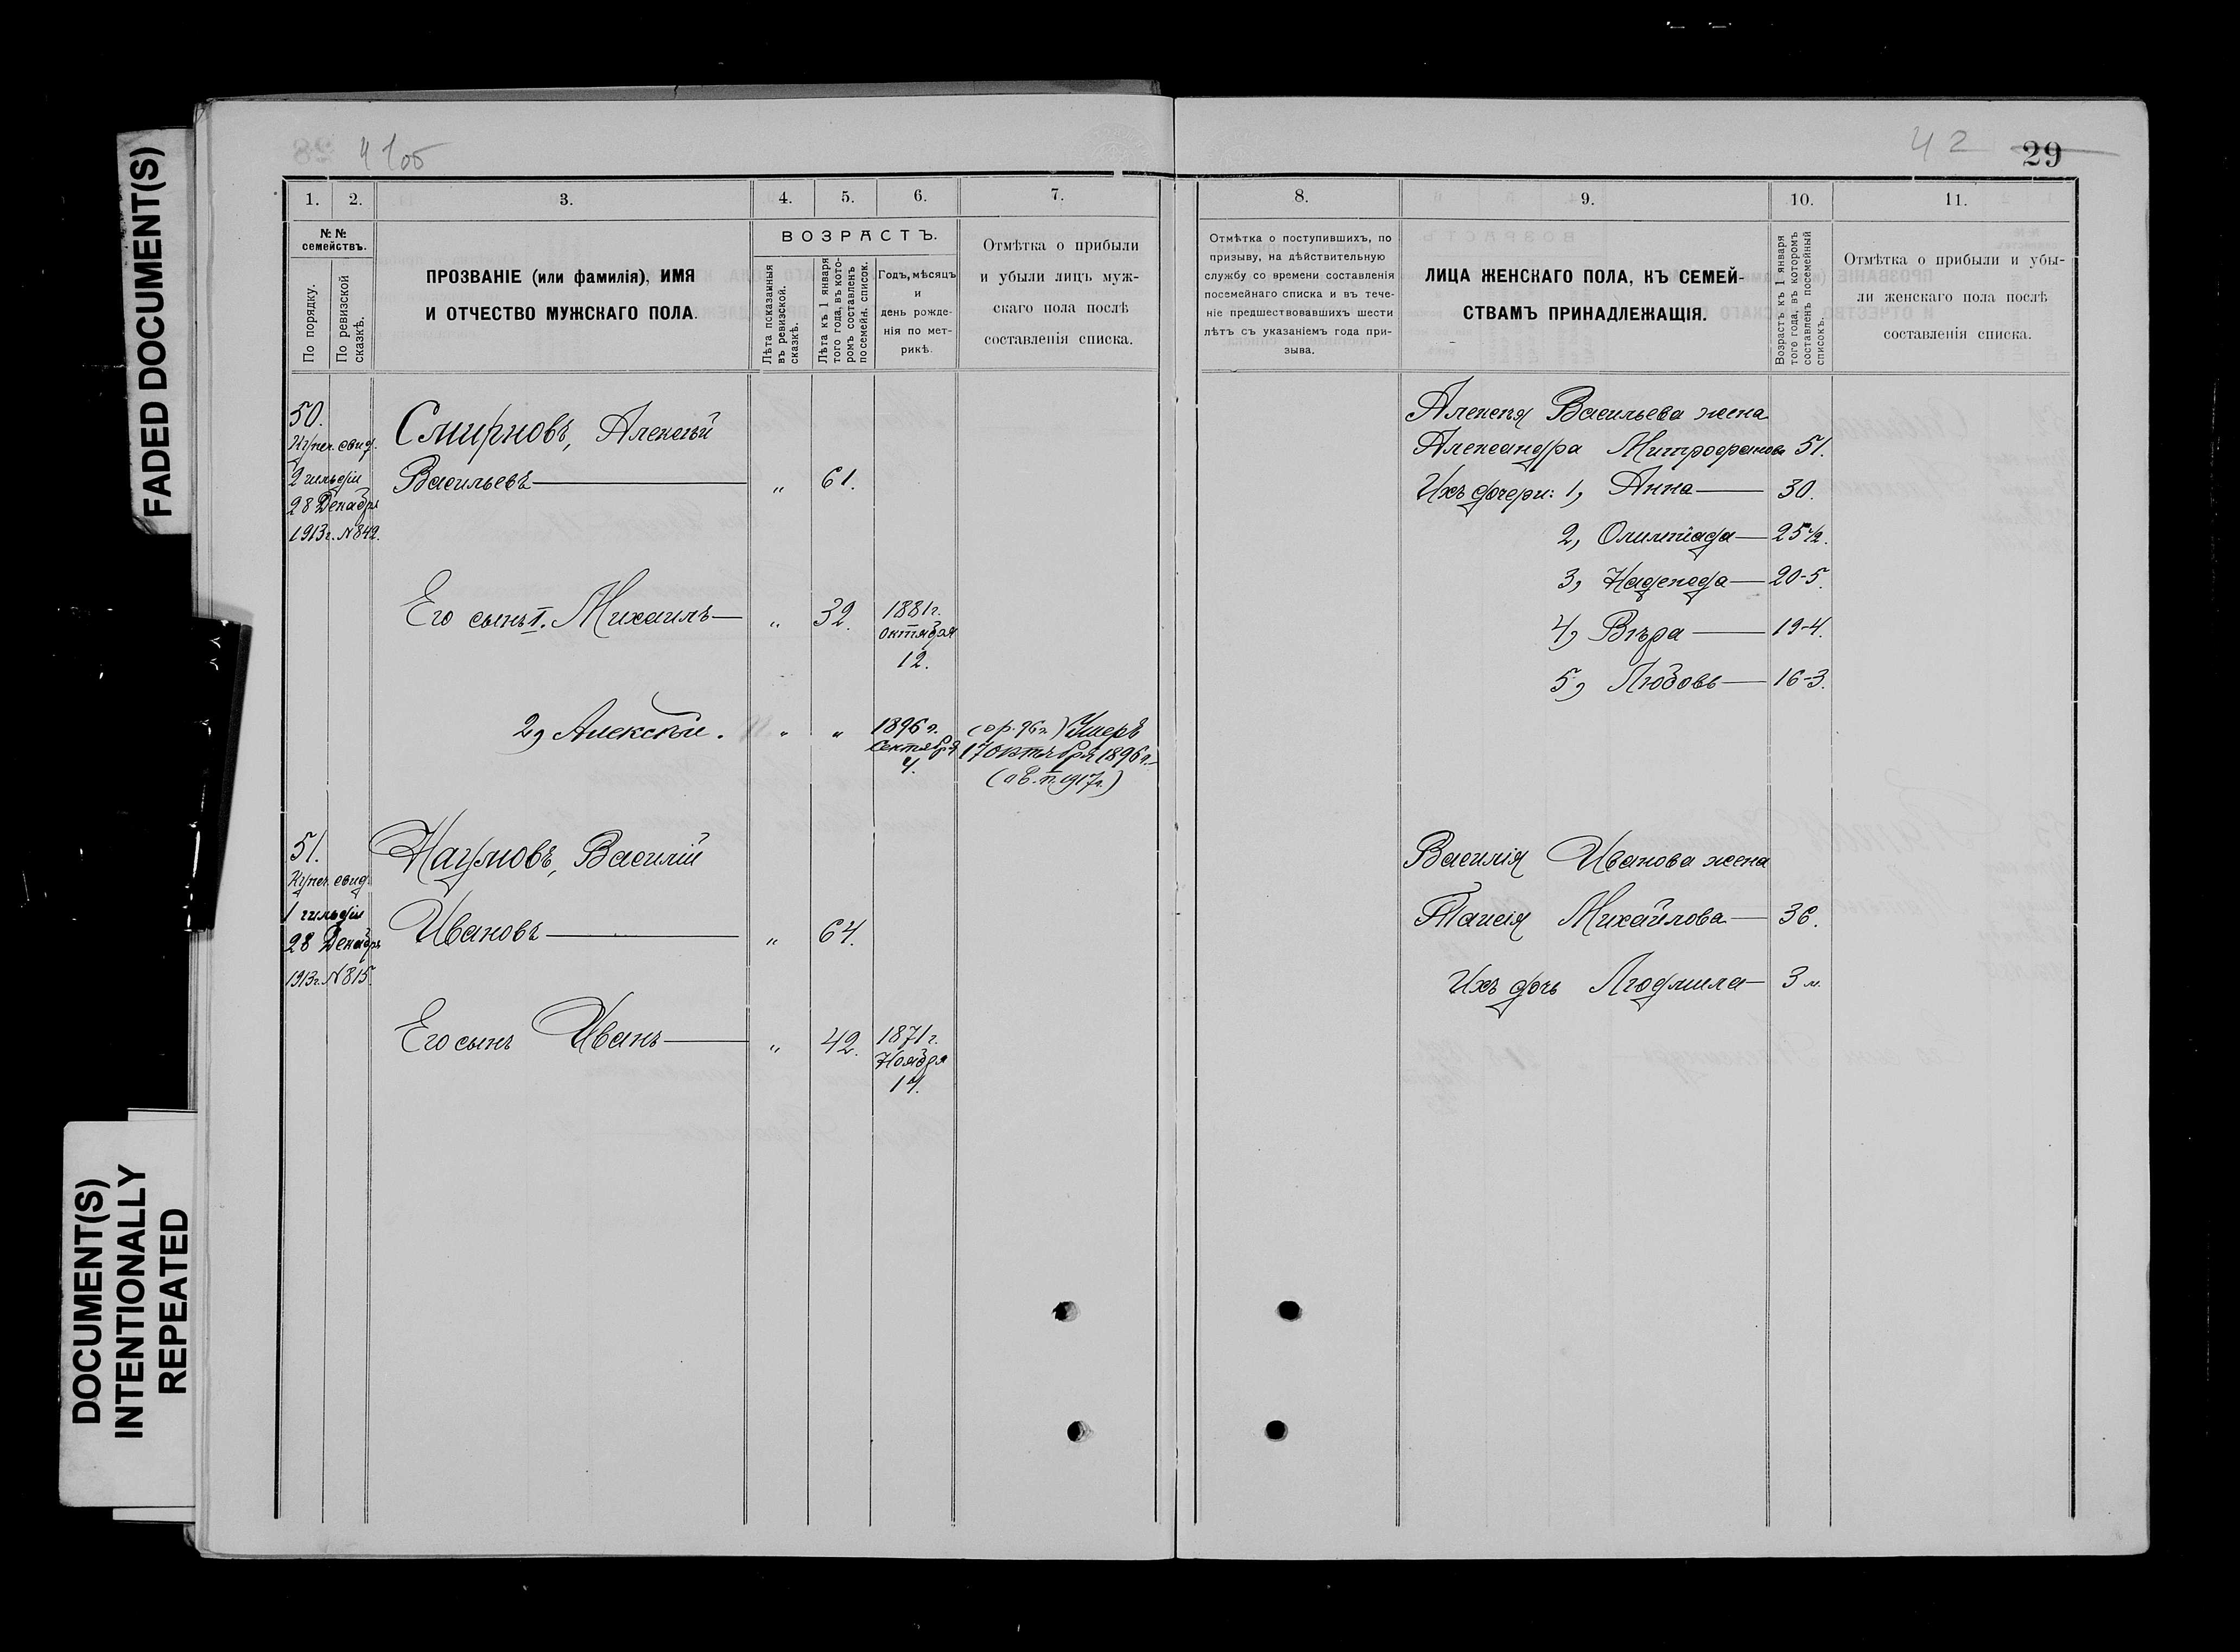 FADED DOCUMENT(S)
DOCUMENT(S)
INTENTIONALLY
REPEATED
41об
1. 2. 3. 4. 5. 6. 7.
№ №
семействъ.
По порядку.
По ревизской
сказкѣ.
ПРОЗВАНІЕ (или фамилія), ИМЯ
И ОТЧЕСТВО МУЖСКАГО ПОЛА.
ВОЗРАСТЪ.
Лѣта показанныя
въ ревизской.
сказкѣ.
Лѣта къ 1 января
того года, въ кото-
ромъ составленъ
посемейн. список.
Годъ, мѣсяцъ
и
день рожде-
нія по мет-
рикѣ.
Отмѣтка о прибыли
и убыли лицъ муж-
скаго пола послѣ
составленія списка.
50.
Купеч. свид.
2 гильдіи
28 Декабря
1913г. N 842.
Смирновъ, Алексѣй
Васильевъ — „ 61.
Его сынъ 1. Михаилъ — „ 32. 1881г.
октября
12.
2, Алексѣй. „ „ 1896 г.
Сентября
4.
(ор. 96г.) Умеръ
17 октября 1896 г.
51.
Купеч. свид.
1 гильдіи
28 Декабря
1913г. N 815.
Наумовъ, Василій
Ивановъ — „ 64.
Его сынъ Иванъ — „ 42. 1871 г.
Ноября
14.
42 29
8. 9. 10. 11.
Отмѣтка о поступившихъ, по
призыву, на дѣйствительную
службу со времени составленія
посемейнаго списка и въ тече-
ніе предшествовавшихъ шести
лѣтъ съ указаніемъ года при-
зыва.
ЛИЦА ЖЕНСКАГО ПОЛА, КЪ СЕМЕЙ-
СТВАМЪ ПРИНАДЛЕЖАЩІЯ.
Возрастъ къ 1 января
того года, въ которомъ
составленъ посемейный
списокъ.
Отмѣтка о прибыли и убы-
ли женскаго пола послѣ
составленія списка.
Алексѣя Васильева жена
Александра Митрофанова 51.
Ихъ дочери: 1, Анна — 30.
2, Олимпіада — 25 1/2.
3, Надежда — 20-5.
4, Вѣра — 19-4.
5, Любовь — 16-3.
Василія Иванова жена
Таисія Михайлова — 36.
Ихъ дочь Людмила — 3 м.